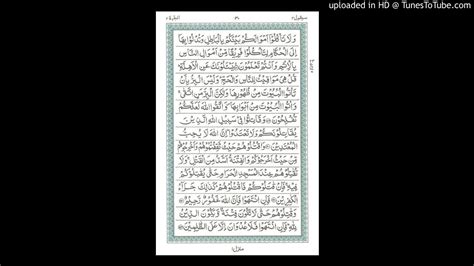 uploaded in HD @ TunesToTube.com
سيقول ٢
البقرة ٢
وَلَا تَاْكُلُوْٓا اَمْوَالَكُمْ بَيْنَكُمْ بِالْبَاطِلِ وَتُدْلُوْا بِهَآ
اِلَى الْحُكَّامِ لِتَاْكُلُوْا فَرِيْقًا مِّنْ اَمْوَالِ النَّاسِ
بِالْاِثْمِ وَاَنْتُمْ تَعْلَمُوْنَ يَسْـَٔلُوْنَكَ عَنِ الْاَهِلَّةِ
قُلْ هِيَ مَوَاقِيْتُ لِلنَّاسِ وَالْحَجِّ وَلَيْسَ الْبِرُّ بِاَنْ
تَاْتُوا الْبُيُوْتَ مِنْ ظُهُوْرِهَا وَلٰكِنَّ الْبِرَّ مَنِ اتَّقٰى
وَاْتُوا الْبُيُوْتَ مِنْ اَبْوَابِهَا وَاتَّقُوا اللّٰهَ لَعَلَّكُمْ
تُفْلِحُوْنَ وَقَاتِلُوْا فِيْ سَبِيْلِ اللّٰهِ الَّذِيْنَ
يُقَاتِلُوْنَكُمْ وَلَا تَعْتَدُوْا اِنَّ اللّٰهَ لَا يُحِبُّ
الْمُعْتَدِيْنَ وَاقْتُلُوْهُمْ حَيْثُ ثَقِفْتُمُوْهُمْ وَاَخْرِجُوْهُمْ
مِّنْ حَيْثُ اَخْرَجُوْكُمْ وَالْفِتْنَةُ اَشَدُّ مِنَ الْقَتْلِ وَلَا
تُقٰتِلُوْهُمْ عِنْدَ الْمَسْجِدِ الْحَرَامِ حَتّٰى يُقٰتِلُوْكُمْ
فِيْهِ فَاِنْ قٰتَلُوْكُمْ فَاقْتُلُوْهُمْ كَذٰلِكَ جَزَآءُ
الْكٰفِرِيْنَ فَاِنِ انْتَهَوْا فَاِنَّ اللّٰهَ غَفُوْرٌ رَّحِيْمٌ
وَقٰتِلُوْهُمْ حَتّٰى لَا تَكُوْنَ فِتْنَةٌ وَّيَكُوْنَ الدِّيْنُ
لِلّٰهِ فَاِنِ انْتَهَوْا فَلَا عُدْوَانَ اِلَّا عَلَى الظّٰلِمِيْنَ
منزل ١